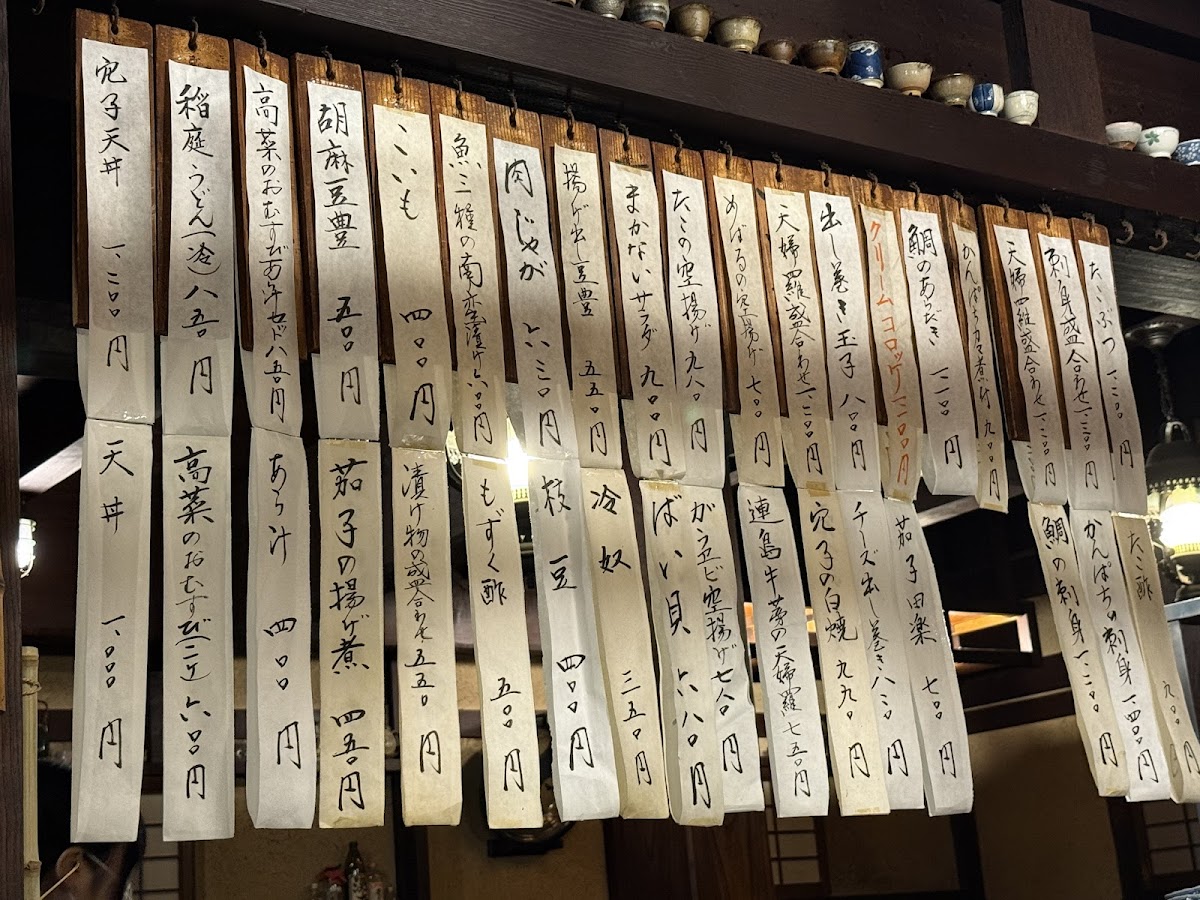 たこぶつ
刺身盛合わせ
天婦羅盛合わせ
九〇〇円
鯛のあらだき
クリームコロッケ
出し巻き玉子 八〇〇円
天婦羅盛合わせ
めばるの空揚げ 七〇〇円
たこの空揚げ 九八〇円
まかないサラダ 九〇〇円
揚げ出し豆豊 五五〇円
肉じゃが 六三〇円
魚三種の南蛮漬け 六〇〇円
こいも 四〇〇円
胡麻豆豊 五〇〇円
高菜のおむすびあら汁セット八五〇円
稲庭うどん(冷)八五〇円
穴子天丼 一、二〇〇円
たこ酢 九〇〇円
かんぱちの刺身 一、四〇〇円
鯛の刺身
茄子田楽 七〇〇円
チーズ出し巻き 八三〇円
穴子の白焼 九九〇円
連島牛蒡の天婦羅 七五〇円
ガラエビ空揚げ 七八〇円
ばい貝 六八〇円
冷奴 三五〇円
枝豆 四〇〇円
もずく酢 五〇〇円
漬け物の盛合わせ 五五〇円
茄子の揚げ煮 四五〇円
あら汁 四〇〇円
高菜のおむすび(二ケ) 六〇〇円
天丼 一、〇〇〇円